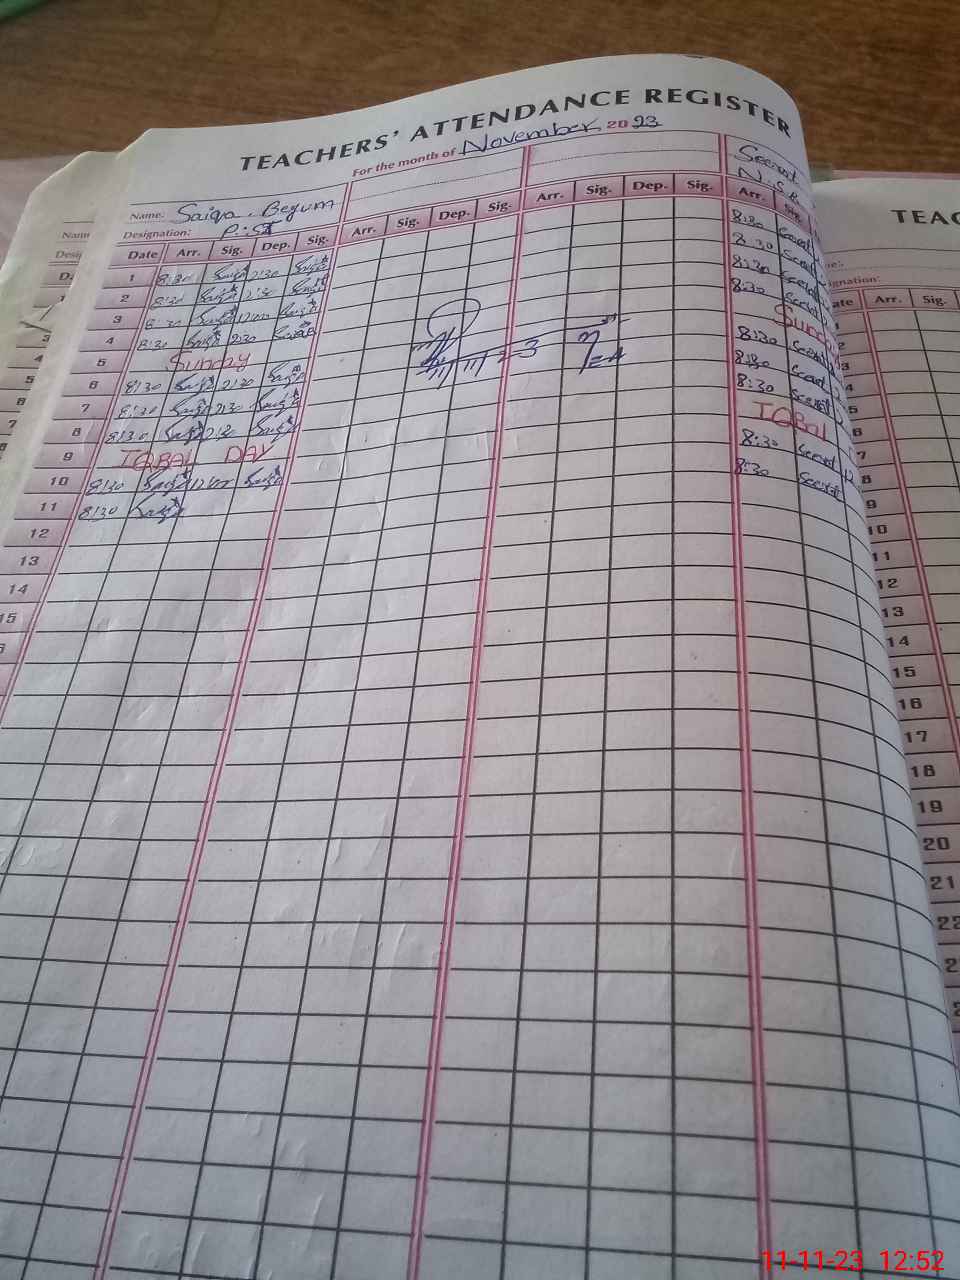 TEACHERS' ATTENDANCE REGISTER
For the month of November 2023
Name: Saiqa Begum
Designation: P.ST
Date Arr. Sig. Dep. Sig. Arr. Sig. Dep. Sig. Arr. Sig. Dep. Sig. Arr. Sig.
1 8:30 Saiqa 2:30 Saiqa 8:30
2 8:30 Saiqa 2:30 Saiqa 8:30
3 8:30 Saiqa 12:00 Saiqa 8:30
4 8:30 Saiqa 2:30 Saiqa 8:30
5 Sunday Sunday
6 8:30 Saiqa 2:30 Saiqa 8:30
7 8:30 Saiqa 2:30 Saiqa 8:30
8 8:30 Saiqa 2:30 Saiqa 8:30
9 IQBAL DAY IQBAL
10 8:30 Saiqa 12:00 Saiqa 8:30
11 8:30 Saiqa 8:30
12
13
14
15
TEAC
Arr. Sig.
7
8
9
10
11
12
13
14
15
16
17
18
19
20
21
11-11-23 12:52